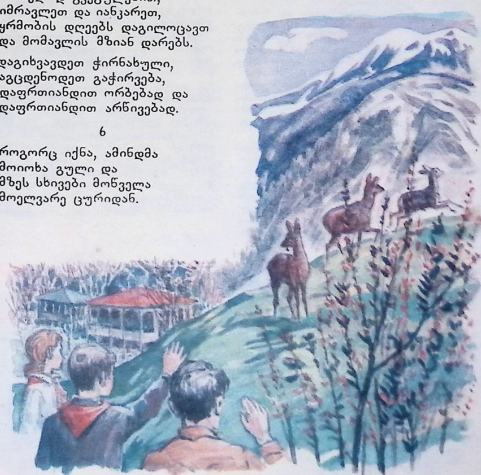 იმრავლეთ და იანკარეთ,
ყრმობის დღეებს დაგილოცავთ
და მომავლის მზიან დარებს.
დაგიხვავდეთ ჭირნახული,
აგცდენოდეთ გაჭირვება,
დაფრთიანდით ორბებად და
დაფრთიანდით არწივებად.
6
როგორც იქნა, ამინდმა
მოიოხა გული და
მზეს სხივები მოწველა
მოელვარე ცურიდან.